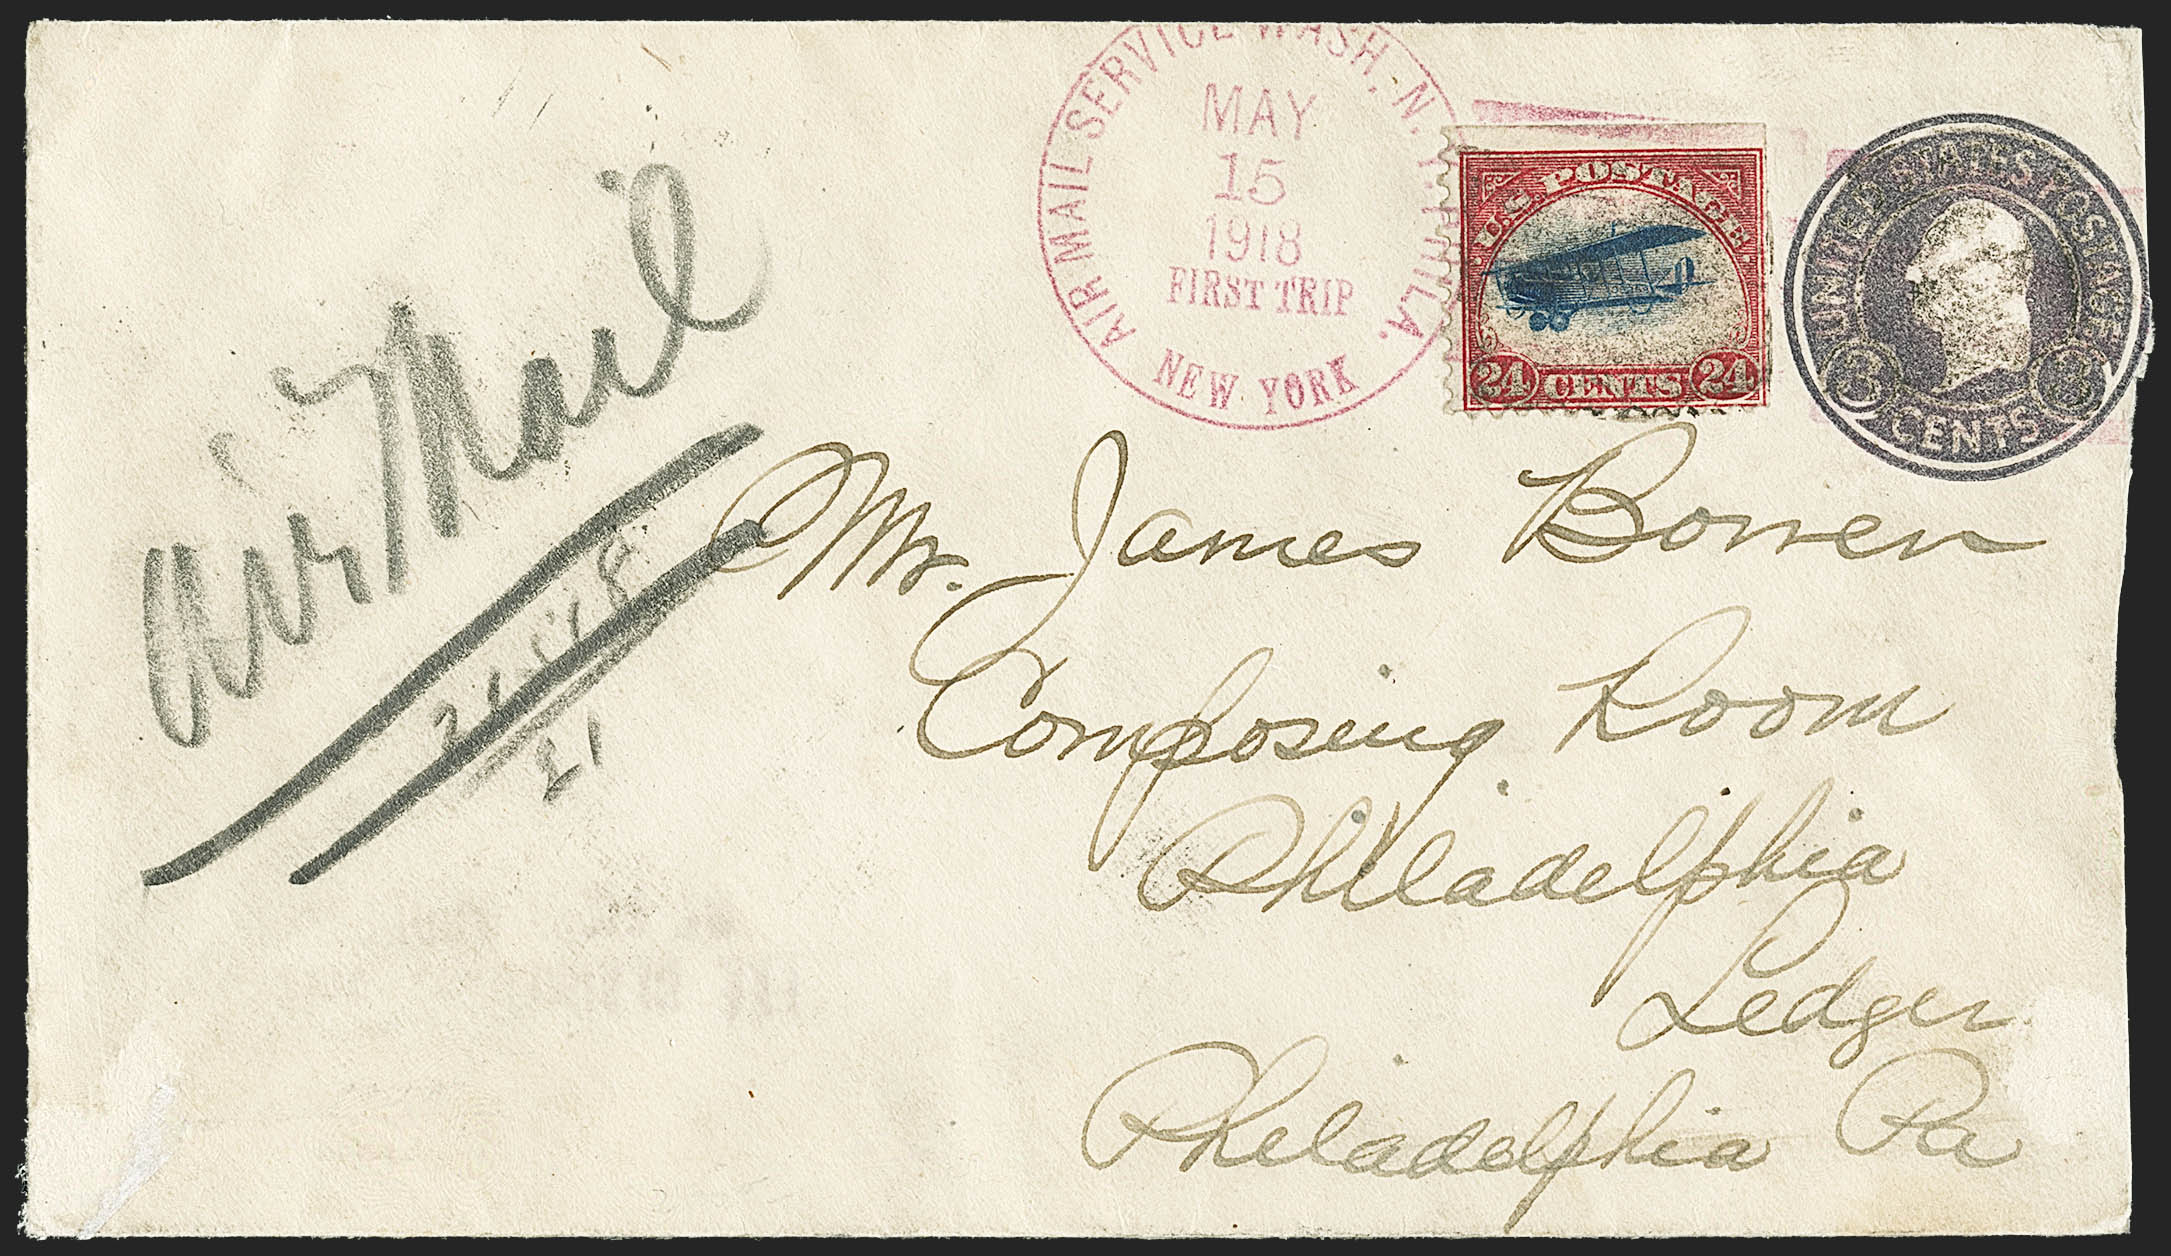 AIR MAIL SERVICE WASH. N.Y. PHILA.
MAY
15
1918
FIRST TRIP
NEW YORK
U.S. POSTAGE
24 CENTS 24
UNITED STATES POSTAGE
3 CENTS 3
Air Mail
Mr. James Bowen
Composing Room
Philadelphia
Ledger
Philadelphia Pa
21